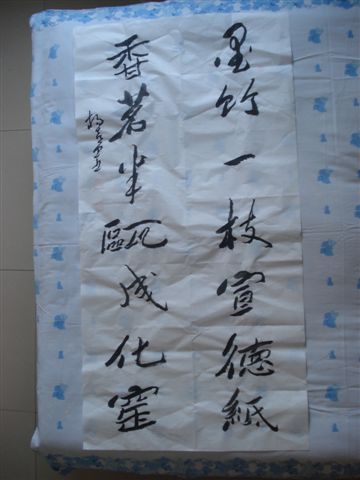 墨竹一枝宣德紙
香茗半甌成化窑